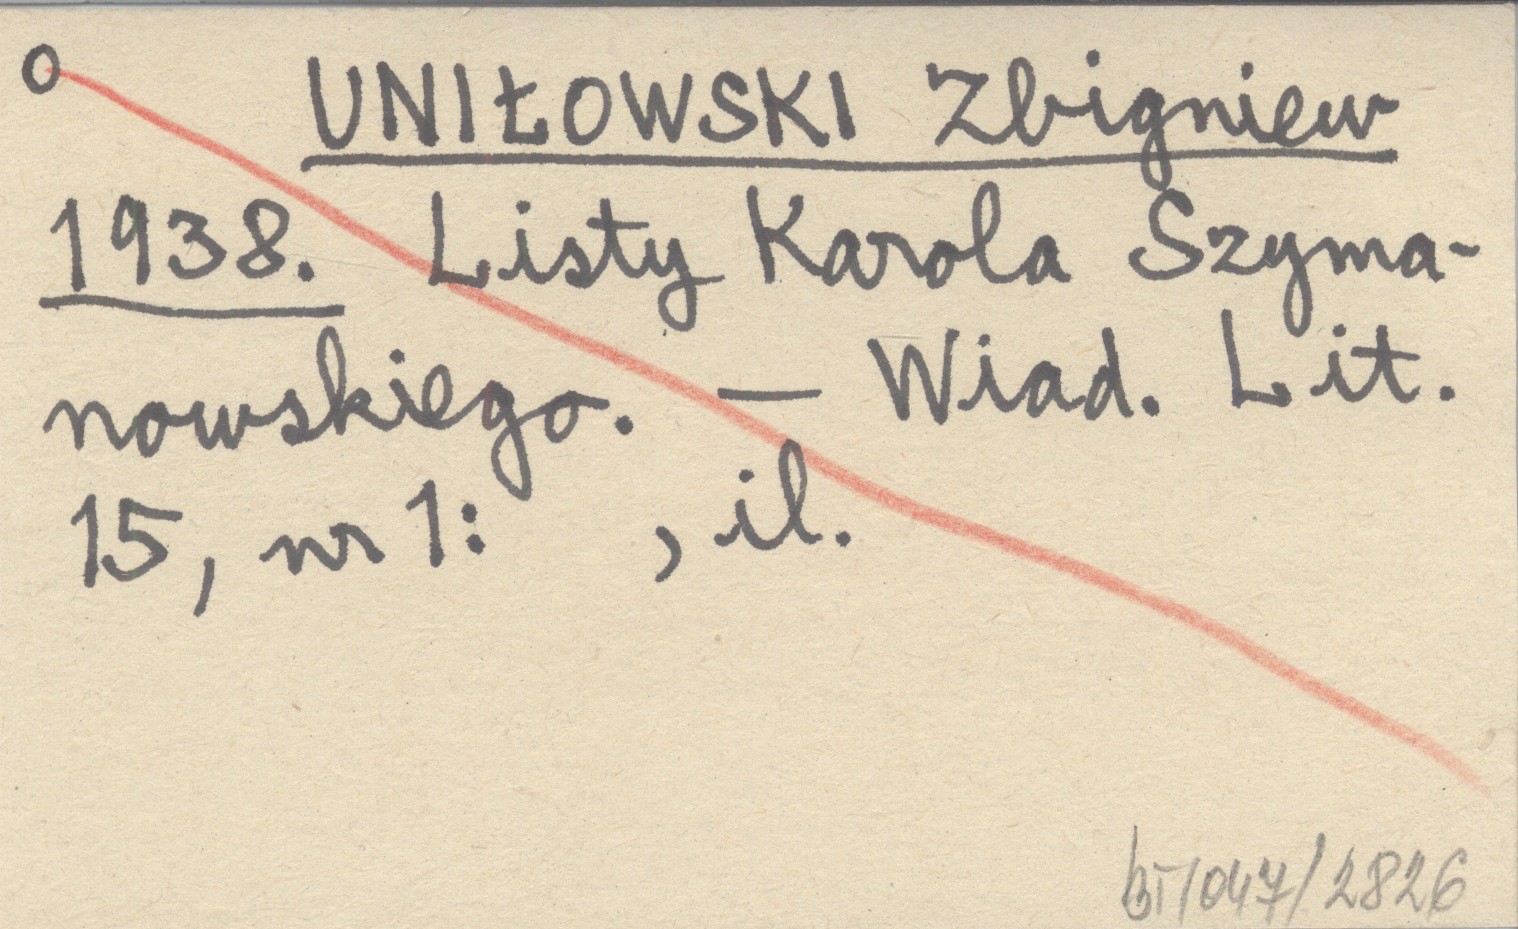 O UNIŁOWSKI Zbigniew
1938. Listy Karola Szyma-
nowskiego. — Wiad. Lit.
15, nr 1: , il.
BT/047/2826